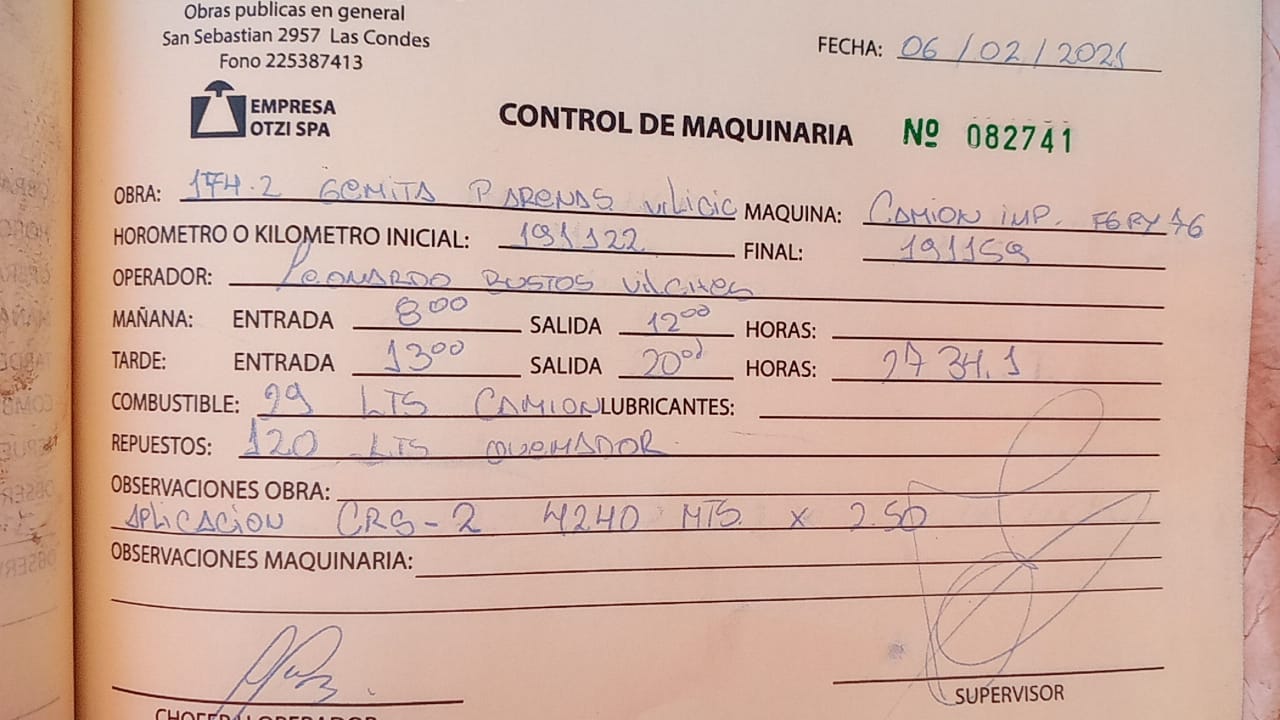 Obras publicas en general
San Sebastian 2957 Las Condes
Fono 225387413
FECHA: 06/02/2021
EMPRESA
OTZI SPA
CONTROL DE MAQUINARIA Nº 082741
OBRA: 174.2 GEMITA P ARENAS VILICIC MAQUINA: CAMION IMP. FGRY76
HOROMETRO O KILOMETRO INICIAL: 191122 FINAL: 191159
OPERADOR: LEONARDO BUSTOS VILCHES
MAÑANA: ENTRADA 8⁰⁰ SALIDA 12⁰⁰ HORAS:
TARDE: ENTRADA 13⁰⁰ SALIDA 20⁰⁰ HORAS: 2734.1
COMBUSTIBLE: 99 LTS CAMION LUBRICANTES:
REPUESTOS: 120 LTS QUEMADOR
OBSERVACIONES OBRA:
APLICACION CRS-2 4240 MTS x 2.50
OBSERVACIONES MAQUINARIA:
SUPERVISOR